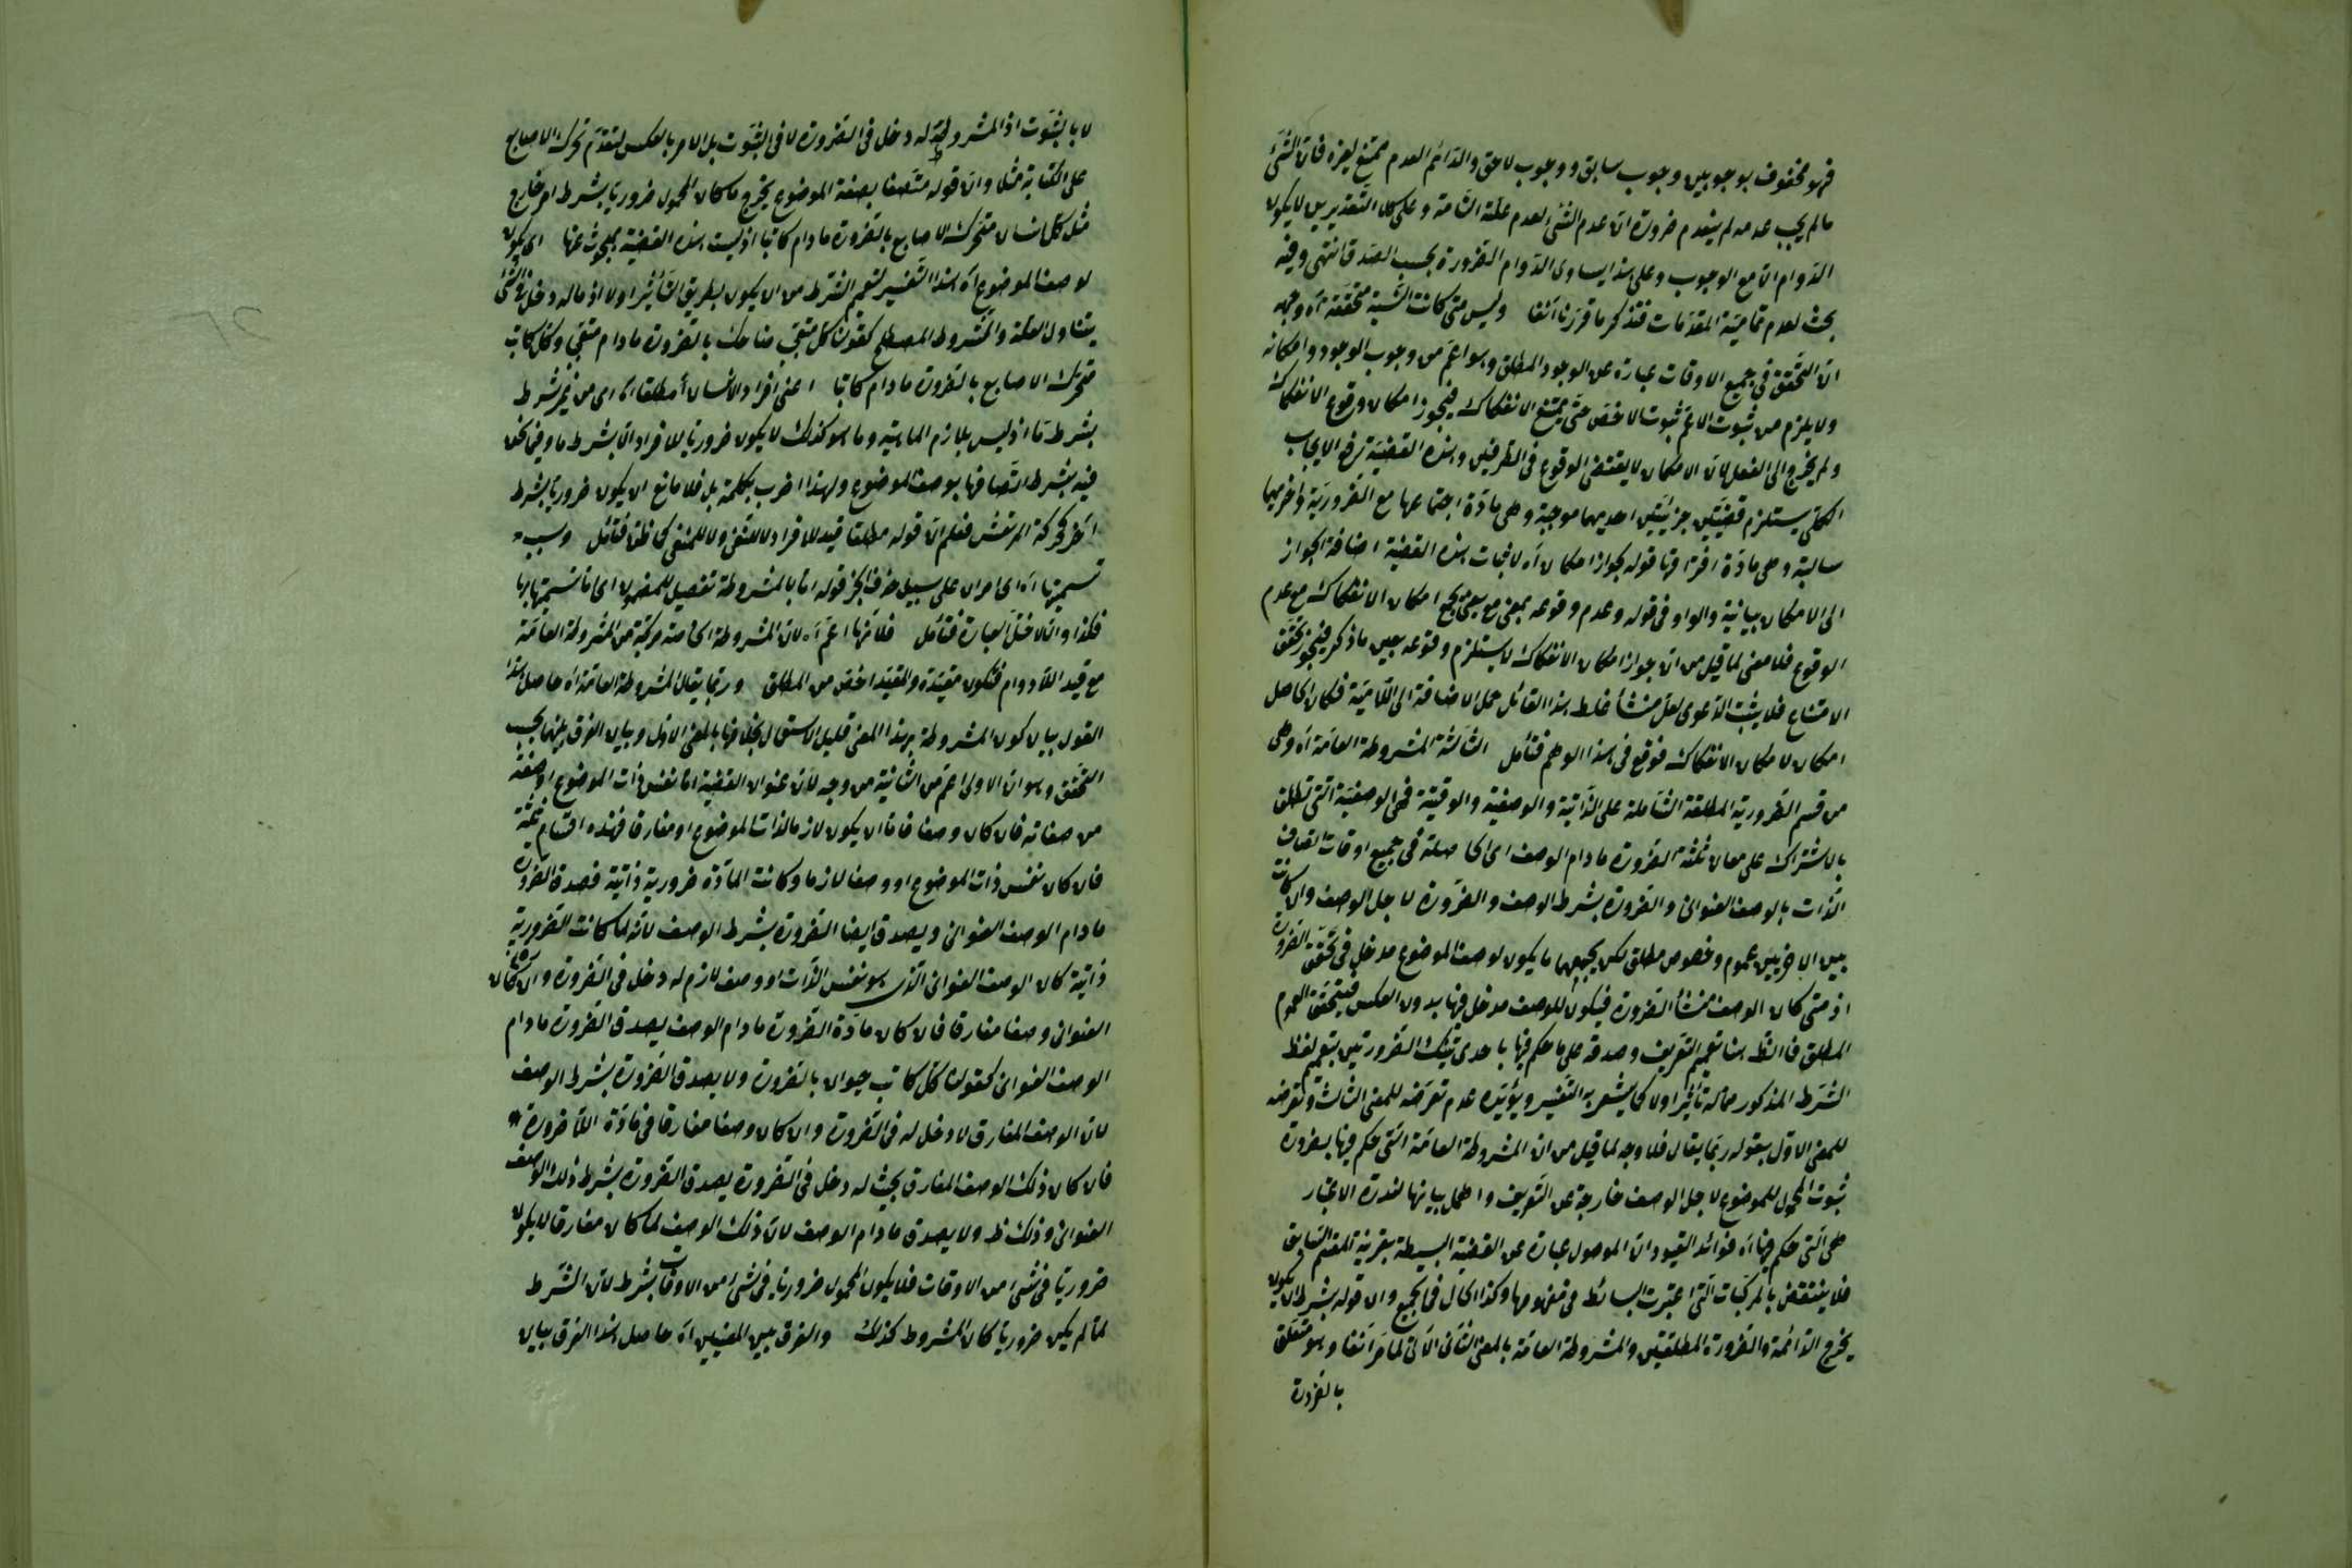 فهو محفوف بوجوبين وجوب سابق ووجوب لاحق والدائم العدم ممتنع لغيره فان الشئ
مالم يجب عدمه لم ينعدم ضرورة ان عدم الشئ لعدم علته التامة وعلى كلا التقديرين لا يكون
الدوام الا مع الوجوب وعلى هذا يساوى الدوام الضرورة بحسب الصدق انتهى وفيه
بحث لعدم تمامية المقدمات فتذكر ما قررنا آنفا وليس متى كانت النسبة متحققة آه وجهه
ان التحقق فى جميع الاوقات عبارة عن الوجود المطلق وهو اعم من وجوب الوجود وامكانه
ولا يلزم من ثبوت الاعم ثبوت الاخص حتى يمتنع الانفكاك فيجوز امكان وقوع الانفكاك
ولم يخرج الى الفعل لان الامكان لا يقتضى الوقوع فى الطرفين وهذه القضية ترفع الايجاب
الكلى يستلزم قضيتين جزئيتين احديهما موجبة وهى مادة اجتماعها مع الضرورية واخريهما
سالبة وهى مادة افتراقها قوله لجواز امكان آه لاثبات هذه القضية اضافة الجواز
الى الامكان بيانية والواو فى قوله وعدم وقوعه بمعنى مع يعنى يجمع امكان الانفكاك مع عدم
الوقوع فلا معنى لما قيل من ان جواز امكان الانفكاك لا يستلزم وقوعه بعين ما ذكر فيجوز تحقق
الامتناع فلا يثبت الدعوى لعل منشأ غلط هذا القائل حمل الاضافة الى اللامية فكان الحاصل
امكان لامكان الانفكاك فوقع فى هذا الوهم فتأمل الثالثة المشروطة العامة آه وهى
من قسم الضرورية المطلقة الشاملة على الذاتية والوصفية والوقتية فهى الوصفية التى تطلق
بالاشتراك على معان ثلثة الضرورة مادام الوصف اى الحاصلة فى جميع اوقات اتصاف
الذات بالوصف العنوانى والضرورة بشرط الوصف والضرورة لاجل الوصف وان كانت
بين الاخريين عموم وخصوص مطلق لكن يجمعهما ما يكون لوصف الموضوع مدخل فى تحقق الضرورة
اذ متى كان الوصف منشأ الضرورة فيكون للوصف مدخل فيها بدون العكس فيتحقق العموم
المطلق فالظ هنا تعميم التعريف وصدقه على ما حكم فيها باحدى تينك الضرورتين بتعميم لفظ
الشرط المذكور مما له تأثير اولا كما يشعر به التفسير ويؤيده عدم تعرضه للمعنى الثالث وتعرضه
للمعنى الاول بقوله ربما يقال فلا وجه لما قيل من ان المشروطة العامة التى حكم فيها بضرورة
ثبوت المحمول للموضوع لاجل الوصف خارجة عن التعريف واهمل بيانها لندرة الاعتبار
هى التى حكم فيها آه فوائد القيود ان الموصول عبارة عن القضية البسيطة بقرينة المقسم السابق
فلا ينتقض بالمركبات التى اعتبرت البسائط فى مفهومها وكذا الحال فى الجميع وان قوله بشرط ان يكون
يخرج الدائمة والضرورة المطلقتين والمشروطة العامة بالمعنى الثانى الآتى لما مر آنفا وهو متعلق
بالضرورة
لا بالثبوت اذ المشروطية له دخل فى الضرورة لا فى الثبوت بل الامر بالعكس لتقدم تحرك الاصابع
على الكتابة مثلا وان قوله متصفا بصفة الموضوع يخرج ما كان المحمول ضروريا بشرط امر خارج
مثل كل انسان متحرك الاصابع بالضرورة مادام كاتبا اذ ليست هذه القضية بمبحوث عنها اى يكون
لوصف الموضوع آه هذا التفسير لتعميم الشرط من ان يكون بطريق التأثير اولا اذ ماله دخل فى الشئ
يتناول العلة والمشروط المصطلح كقولنا كل متعجب ضاحك بالضرورة مادام متعجبا وكل كاتب
متحرك الاصابع بالضرورة مادام كاتبا اعنى افراد الانسان مطلقا آه اى من غير شرط
بشرط ما اذ ليس بلازم الماهية وما هو كذلك لا يكون ضروريا للافراد الا بشرط ما وفيما نحن
فيه بشرط اتصافها بوصف الموضوع ولهذا اضرب بكلمة بل فلا مانع ان يكون ضروريا بشرط
آخر كحركة المرتعش فعلم ان قوله مطلقا قيد للافراد لا للنفى ولا للمنفى كما ظن فتأمل وسبب
تسميتها آه اى امران على سبيل حذف الخبر قوله اما بالمشروطة تفصيل للمضمون اى اما تسميتها بها
فكذا والا لاختل العبارة فتأمل فلانها اعم آه لان المشروطة الخاصة مركبة من المشروطة العامة
مع قيد اللادوام فتكون مقيدة والمقيد اخص من المطلق وربما يقال المشروطة العامة آه حاصل هذا
القول بيان كون المشروطة بهذا المعنى قليل الاستعمال بخلافها بالمعنى الاول وبيان الفرق بينهما بحسب
التحقق وهو ان الاولى اعم من الثانية من وجه لان عنوان القضية اما نفس ذات الموضوع او صفة
من صفاته فان كان وصفا فاما ان يكون لازما لذات الموضوع او مفارقا فهذه اقسام ثلثة
فان كان نفس ذات الموضوع او وصفا لازما وكانت المادة ضرورية ذاتية فصدق الضرورة
مادام الوصف العنوانى ويصدق ايضا الضرورة بشرط الوصف لانه لما كانت الضرورية
ذاتية كان الوصف العنوانى الذى هو نفس الذات او وصف لازم له دخل فى الضرورة وان كان
العنوانى وصفا مفارقا فان كان مادة الضرورة مادام الوصف يصدق الضرورة مادام
الوصف العنوانى كقولنا كل كاتب حيوان بالضرورة ولا يصدق الضرورة بشرط الوصف
لان الوصف المفارق لا دخل له فى الضرورة وان كان وصفا مفارقا فى مادة اللاضرورة
فان كان ذلك الوصف المفارق بحيث له دخل فى الضرورة يصدق الضرورة بشرط ذلك الوصف
العنوانى وذلك ظ ولا يصدق مادام الوصف لان ذلك الوصف لما كان مفارقا لا يكون
ضروريا فى شئ من الاوقات فلا يكون المحمول ضروريا فى شئ من الاوقات بشرط لان الشرط
لما لم يكن ضروريا كان المشروط كذلك والفرق بين المعنيين آه حاصل هذا الفرق بيان